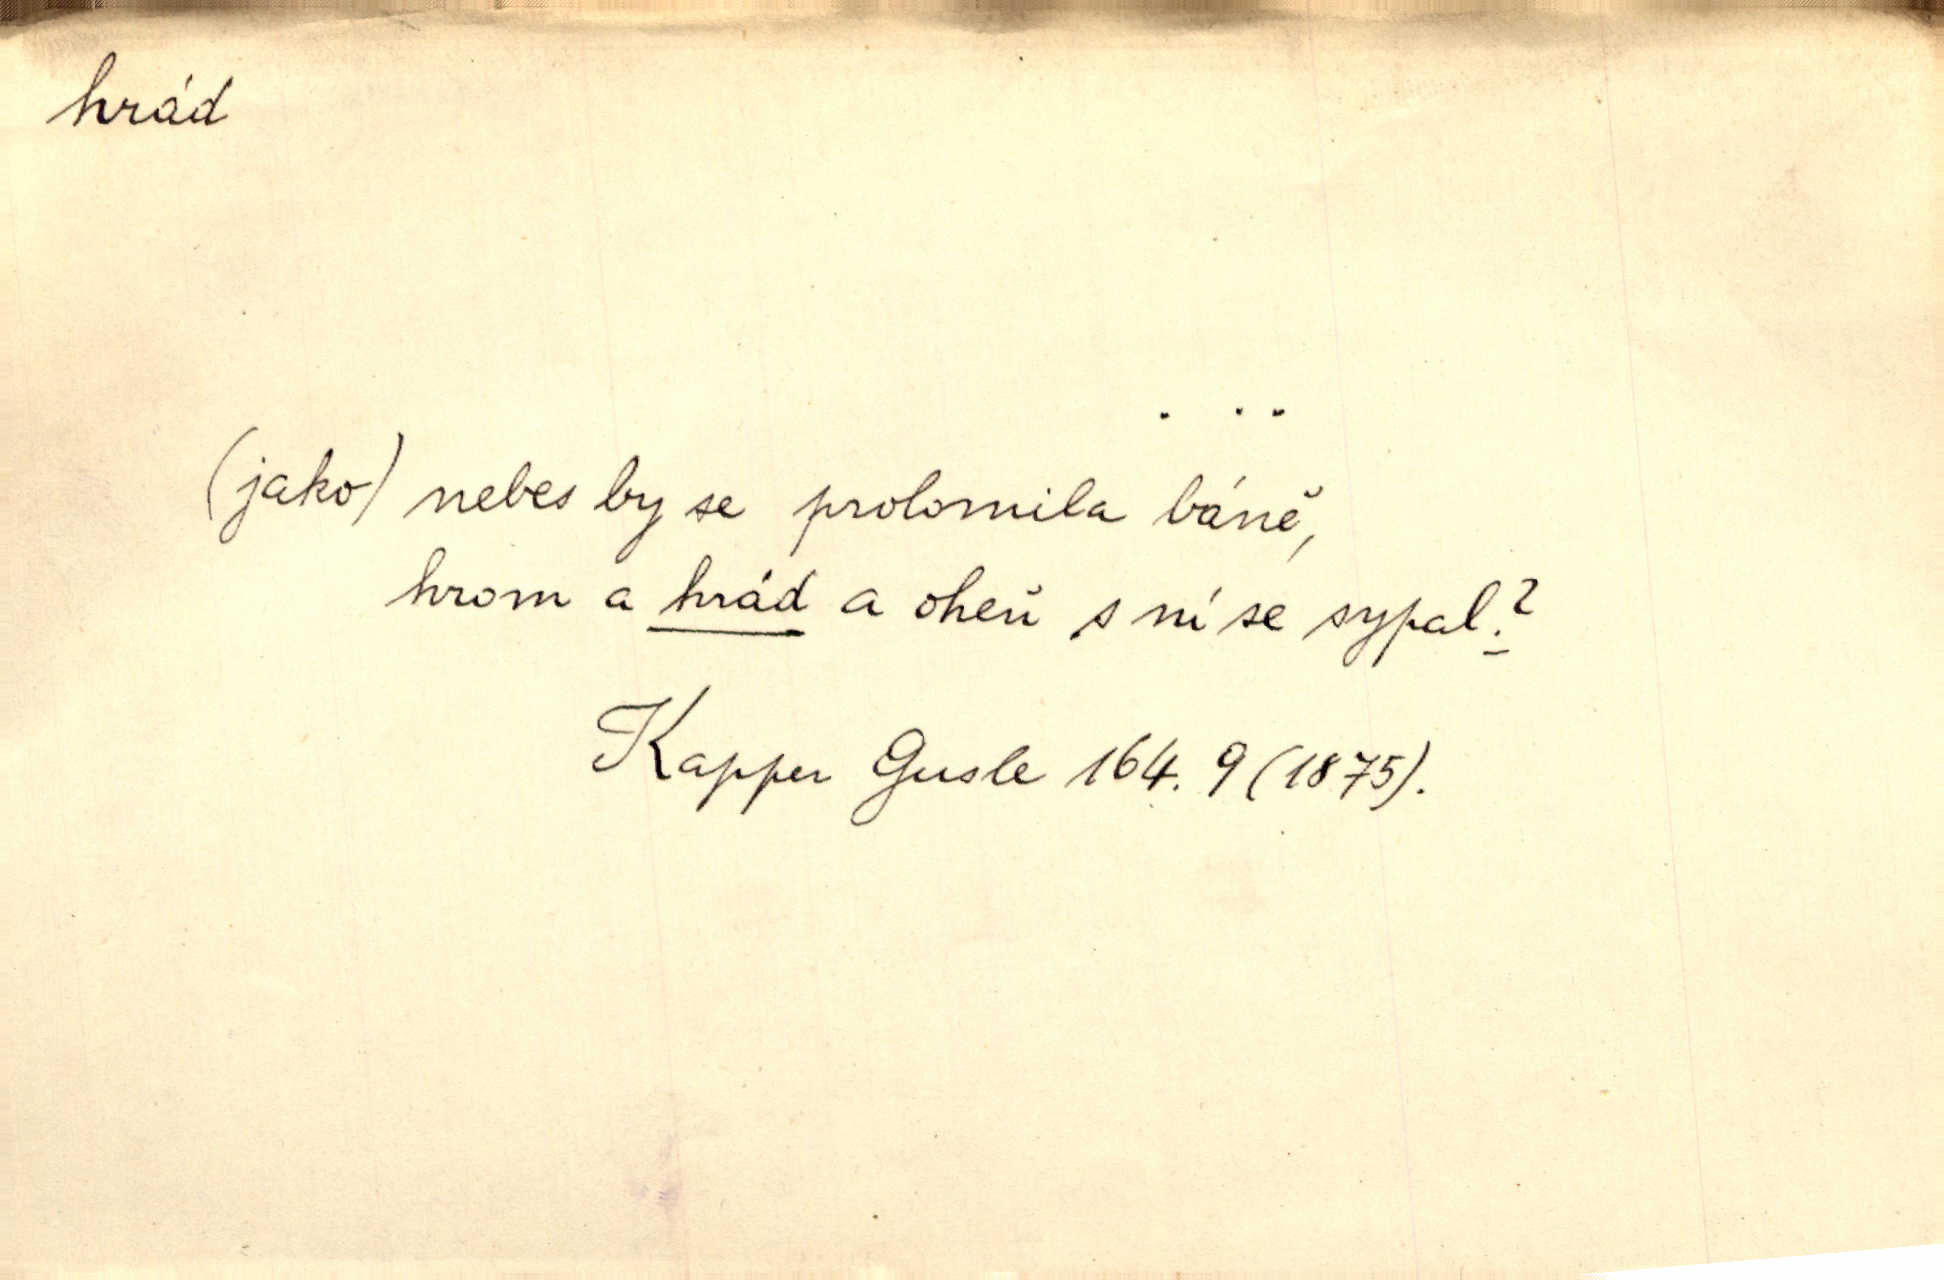 hrád
. . .
(jako) nebes by se prolomila báně,
hrom a hrád a oheň s ní se sypal.?
Kapper Gusle 164. 9 (1875).